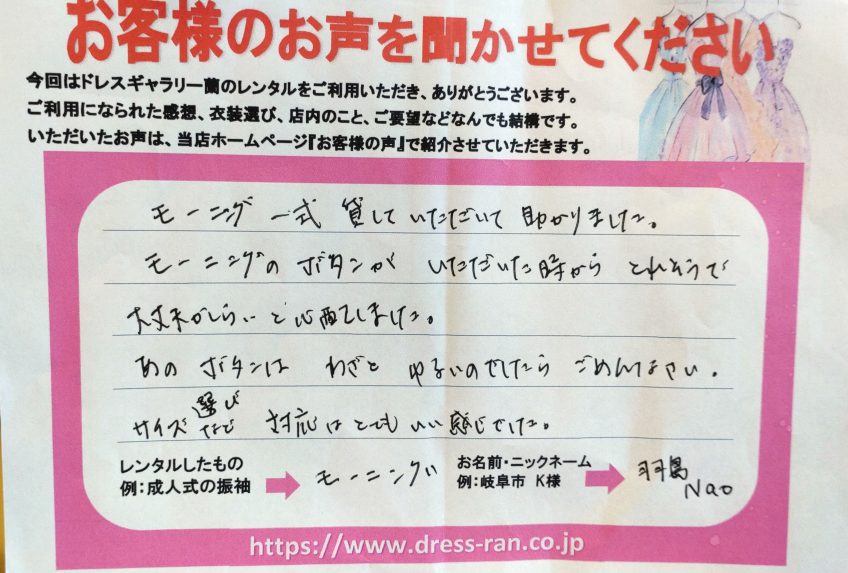 お客様のお声を聞かせてください
今回はドレスギャラリー蘭のレンタルをご利用いただき、ありがとうございます。
ご利用になられた感想、衣装選び、店内のこと、ご要望などなんでも結構です。
いただいたお声は、当店ホームページ『お客様の声』で紹介させていただきます。
モーニング 一式 貸していただいて 助かりました。
モーニングの ボタンが いただいた時から とれそうで
大丈夫かしら、と心配してしました。
あの ボタンは わざと ゆるいのでしたら ごめんなさい。
サイズ選びなど 対応はとてもいい感じでした。
レンタルしたもの
例：成人式の振袖
モーニング
お名前・ニックネーム
例：岐阜市 K様
羽島
Nao
https://www.dress-ran.co.jp